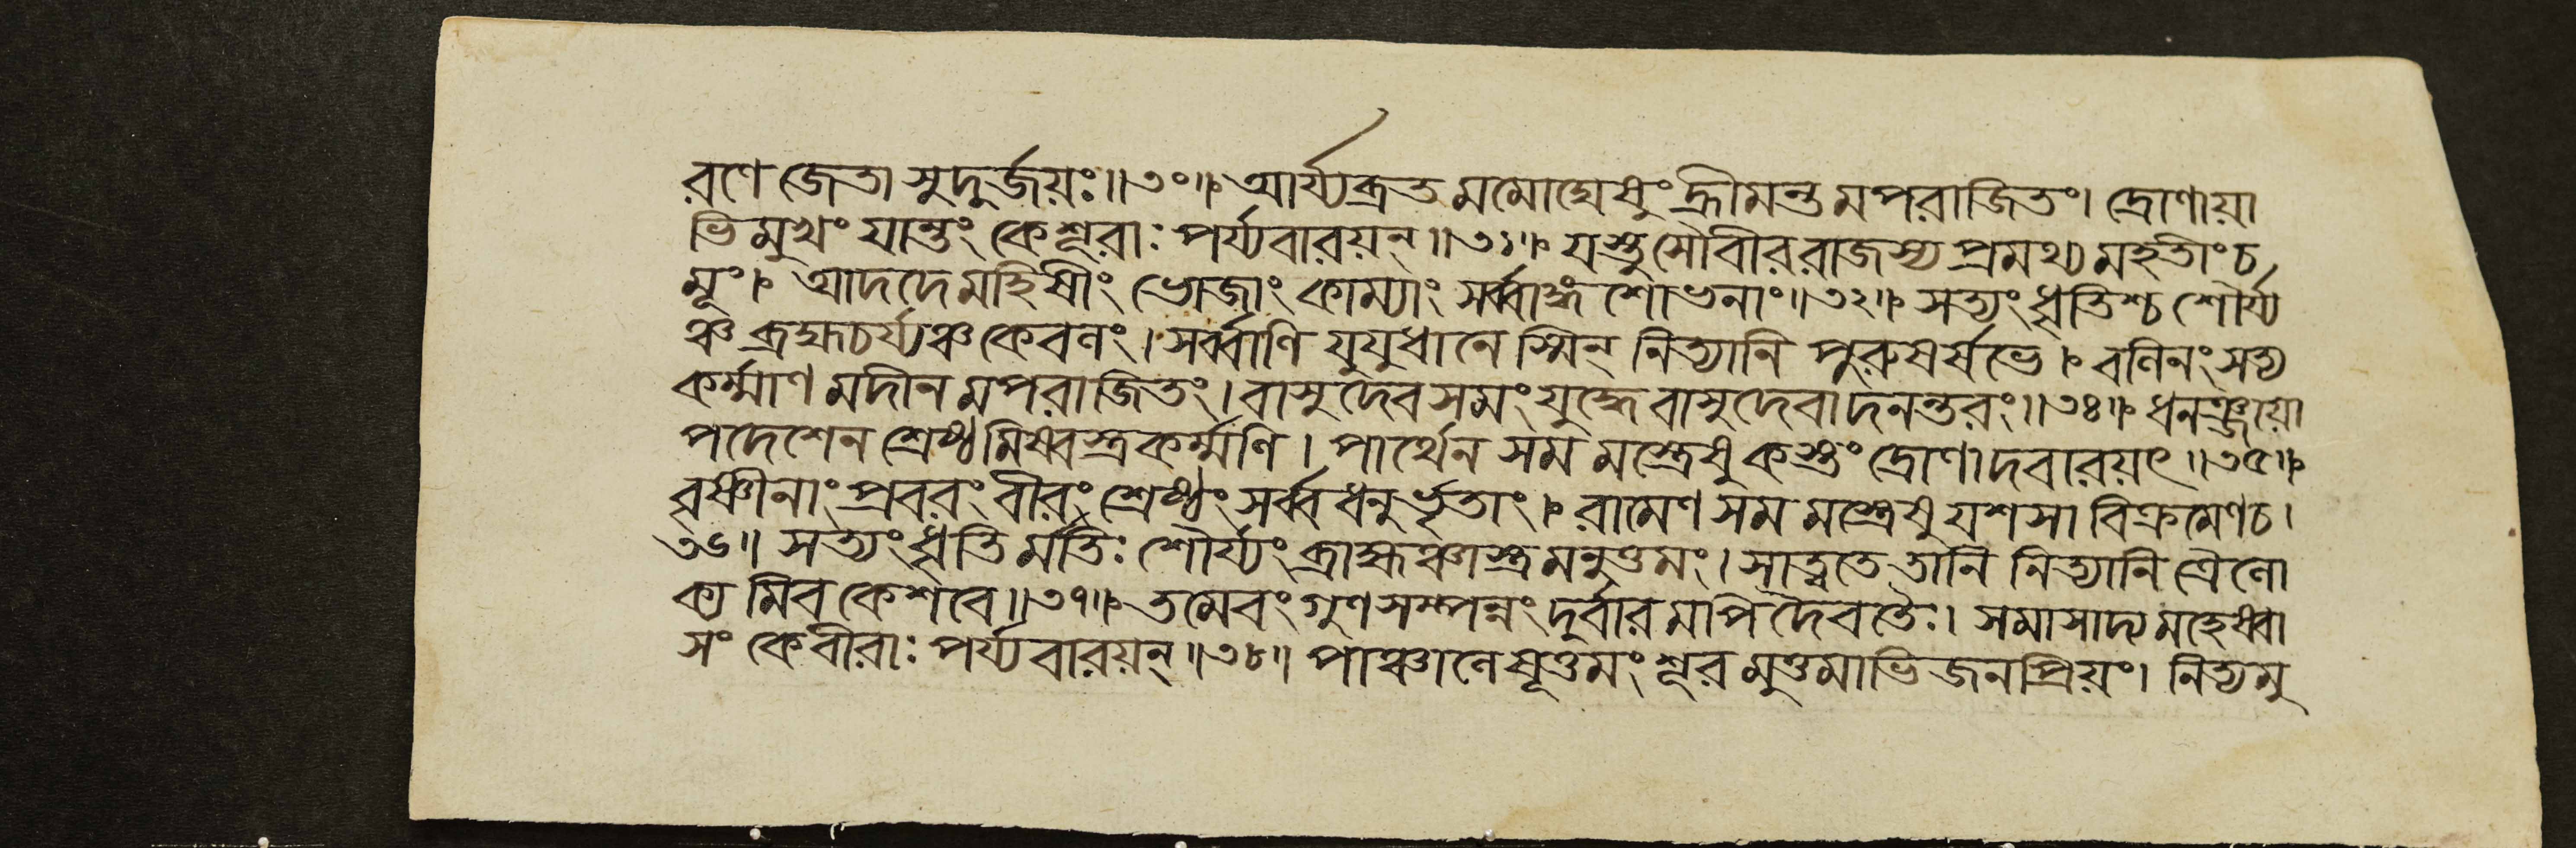 রণে জেতা সুদুর্জয়ঃ॥৩০॥ আর্য্যব্রত মমোঘেষুং হ্রীমন্ত মপরাজিতং। দ্রোণায়া
ভিমুখং যান্তং কে শূরাঃ পর্য্যবারয়ন্॥৩১॥ যস্তু সৌবীররাজস্য প্রমথ্য মহতীং চ
মূং। আদদে মহিষীং ভোজাং কাম্যাং সর্ব্বাঙ্গ শোভনাং॥৩২॥ সত্যং ধৃতিশ্চ শৌর্য্য
ঞ্চ ব্রহ্মচর্য্যঞ্চ কেবলং। সর্ব্বাণি যুযুধানেস্মিন্ নিত্যানি পুরুষর্ষভে। বলিনং সত্য
কর্ম্মাণ মদীন মপরাজিতং। বাসুদেব সমং যুদ্ধে বাসুদেবাদনন্তরং॥৩৪॥ ধনঞ্জয়ো
পদেশেন শ্রেষ্ঠ মিষ্বস্ত্রকর্ম্মণি। পার্থেন সম মস্ত্রেষু কস্তং দ্রোণাদবারয়ৎ॥৩৫॥
বৃষ্ণীনাং প্রবরং বীরং শ্রেষ্ঠং সর্ব্ব ধনুর্ভৃতাং। রামেণ সম মস্ত্রেষু যশসা বিক্রমেণ চ।
৩৬॥ সত্যং ধৃতি র্মতিঃ শৌর্য্যং ব্রাহ্মঞ্চাস্ত্র মনুত্তমং। সাত্বতে তানি নিত্যানি ত্রৈলো
ক্য মিব কেশবে॥৩৭॥ তমেবং গুণসম্পন্নং দুর্বার মপি দৈবতৈঃ। সমাসাদ্য মহেষ্বা
সং কে বীরাঃ পর্য্যবারয়ন্॥৩৮॥ পাঞ্চালেষূত্তমং শূর মুত্তমাভিজনপ্রিয়ং। নিত্যমু